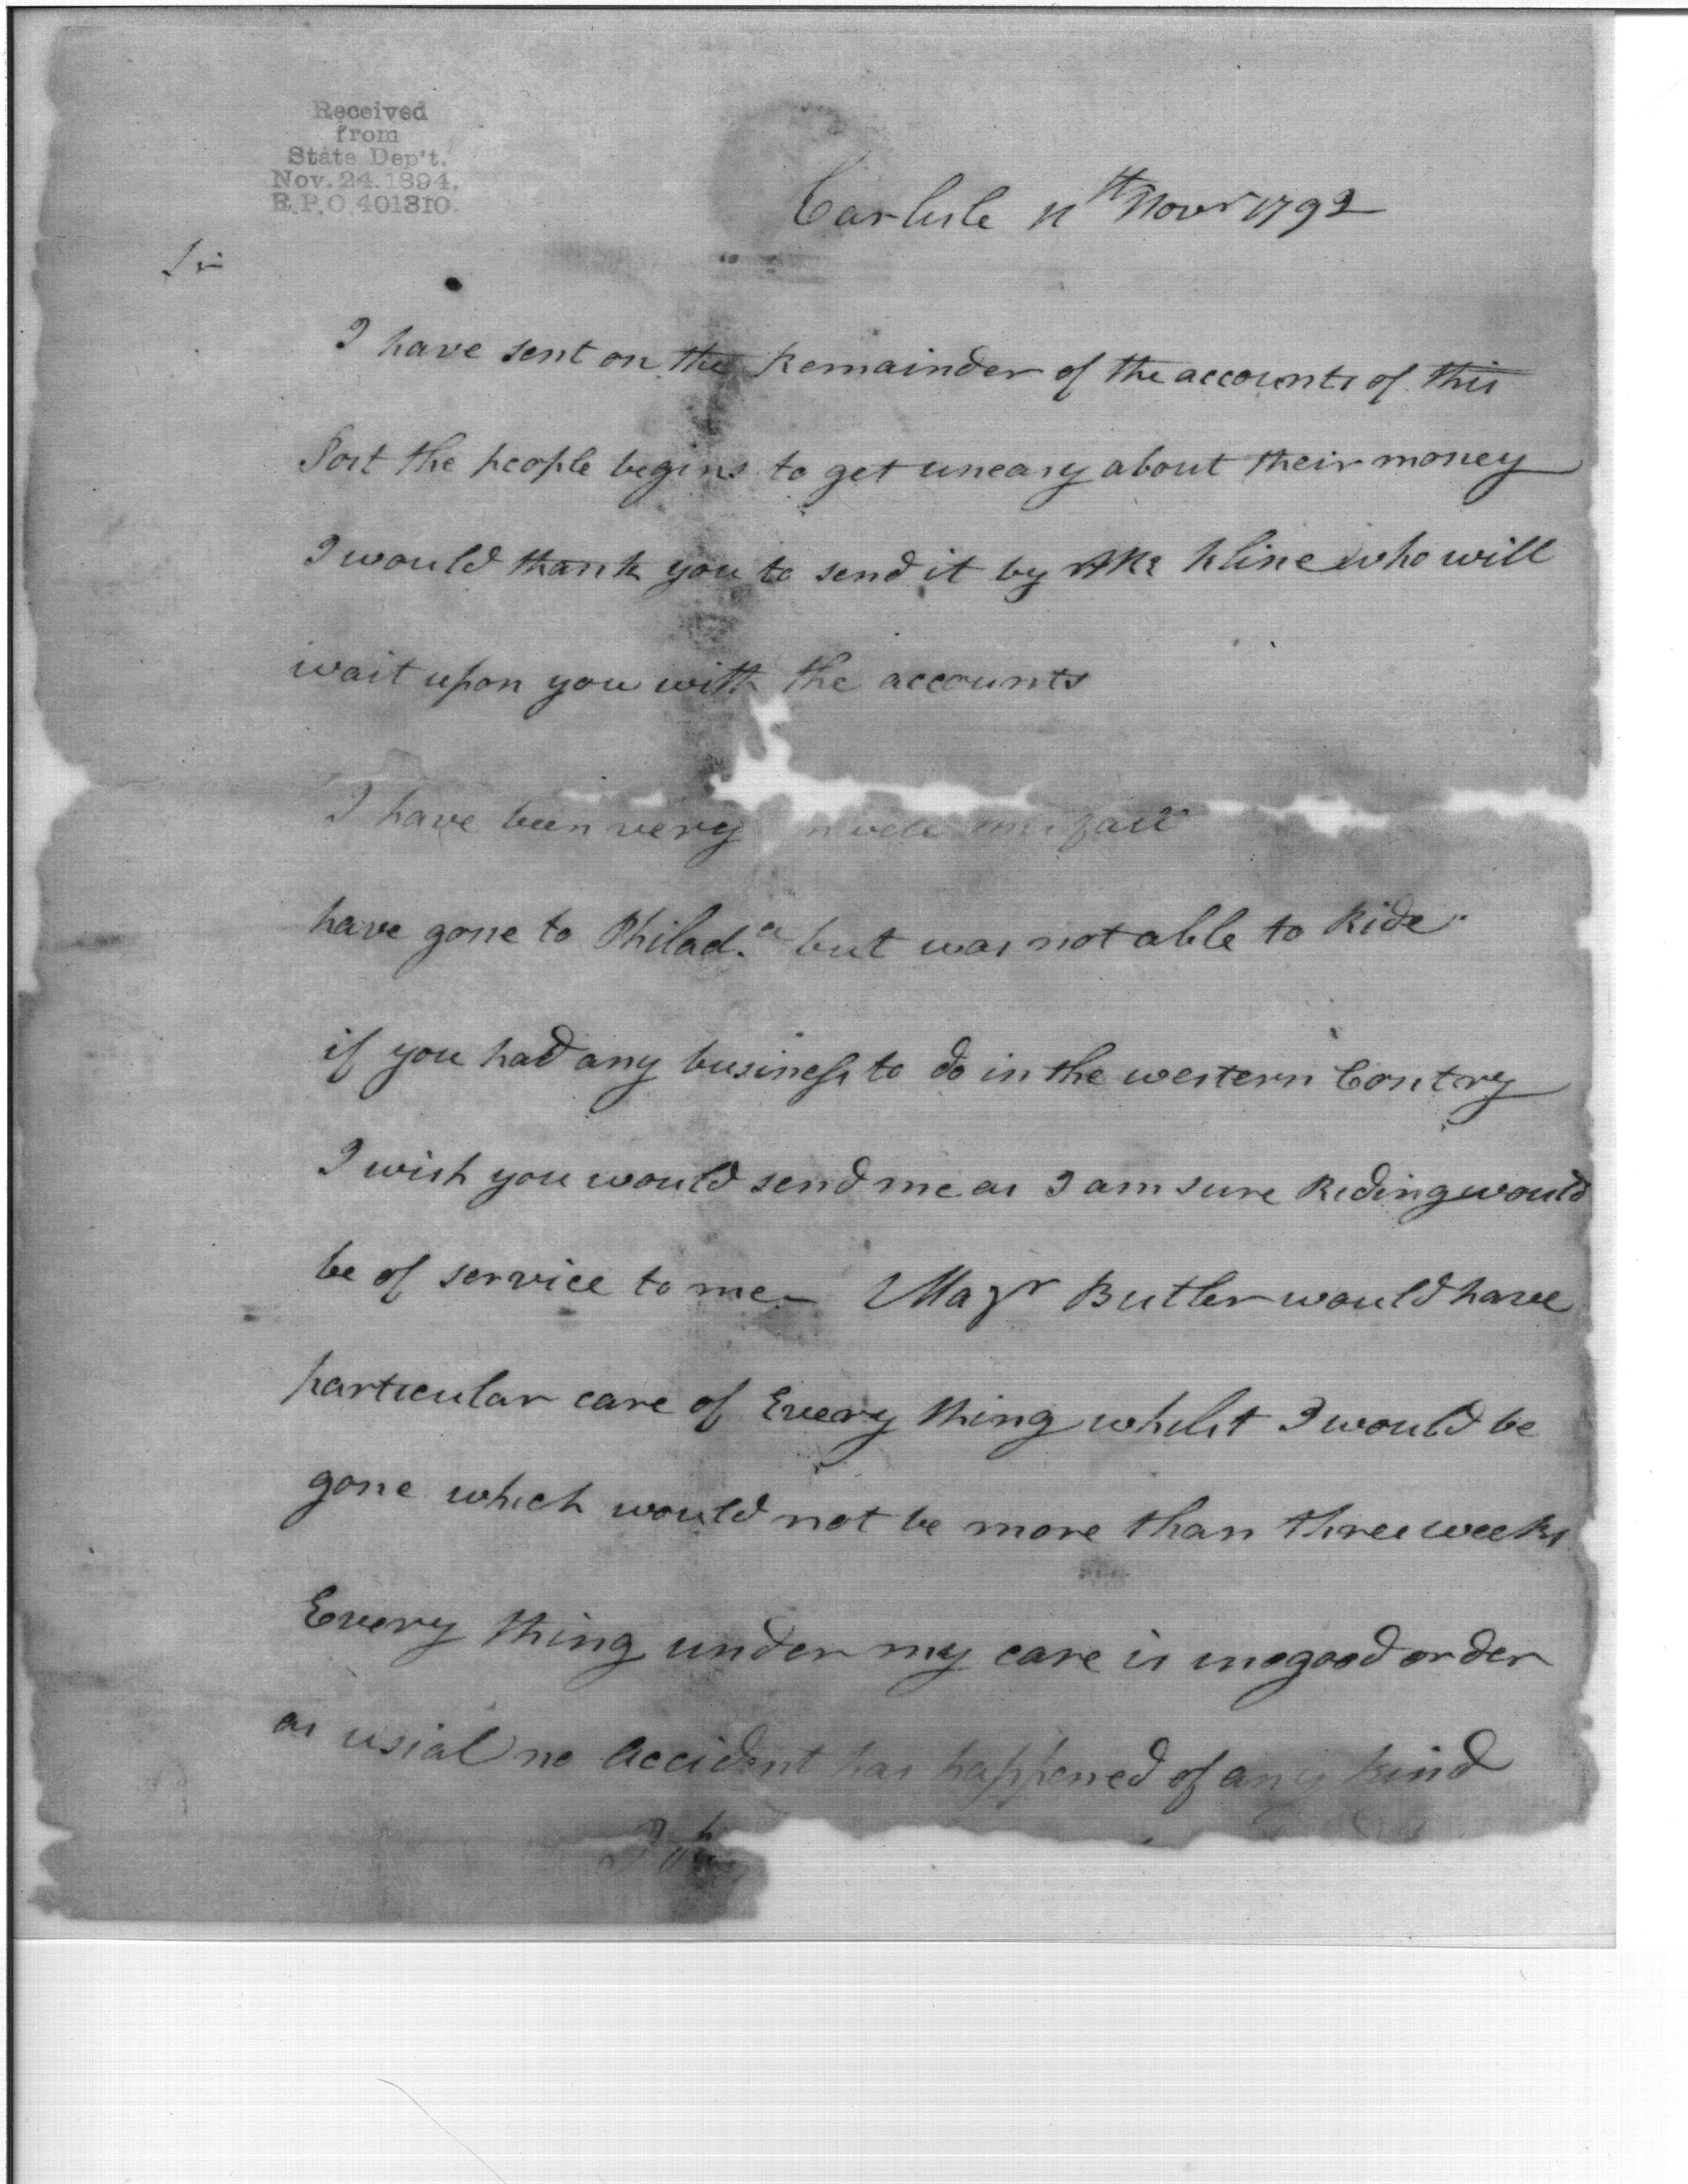 Received
from
State Dep't.
Nov. 24. 1894.
R.P.O. 401310.
Carlisle 11th Novr 1792
Sir
I have sent on the Remainder of the accounts of this
Post the people begins to get uneasy about their money
I would thank you to send it by Mr Kline who will
wait upon you with the accounts
I have been very
have gone to Philad.a but was not able to Ride
if you had any business to do in the western Contry
I wish you would send me as I am sure Riding would
be of service to me - Majr Butler would have
particular care of Every thing whilst I would be
gone which would not be more than three weeks
Every thing under my care is in good order
as usial no accident has happened of any kind
I